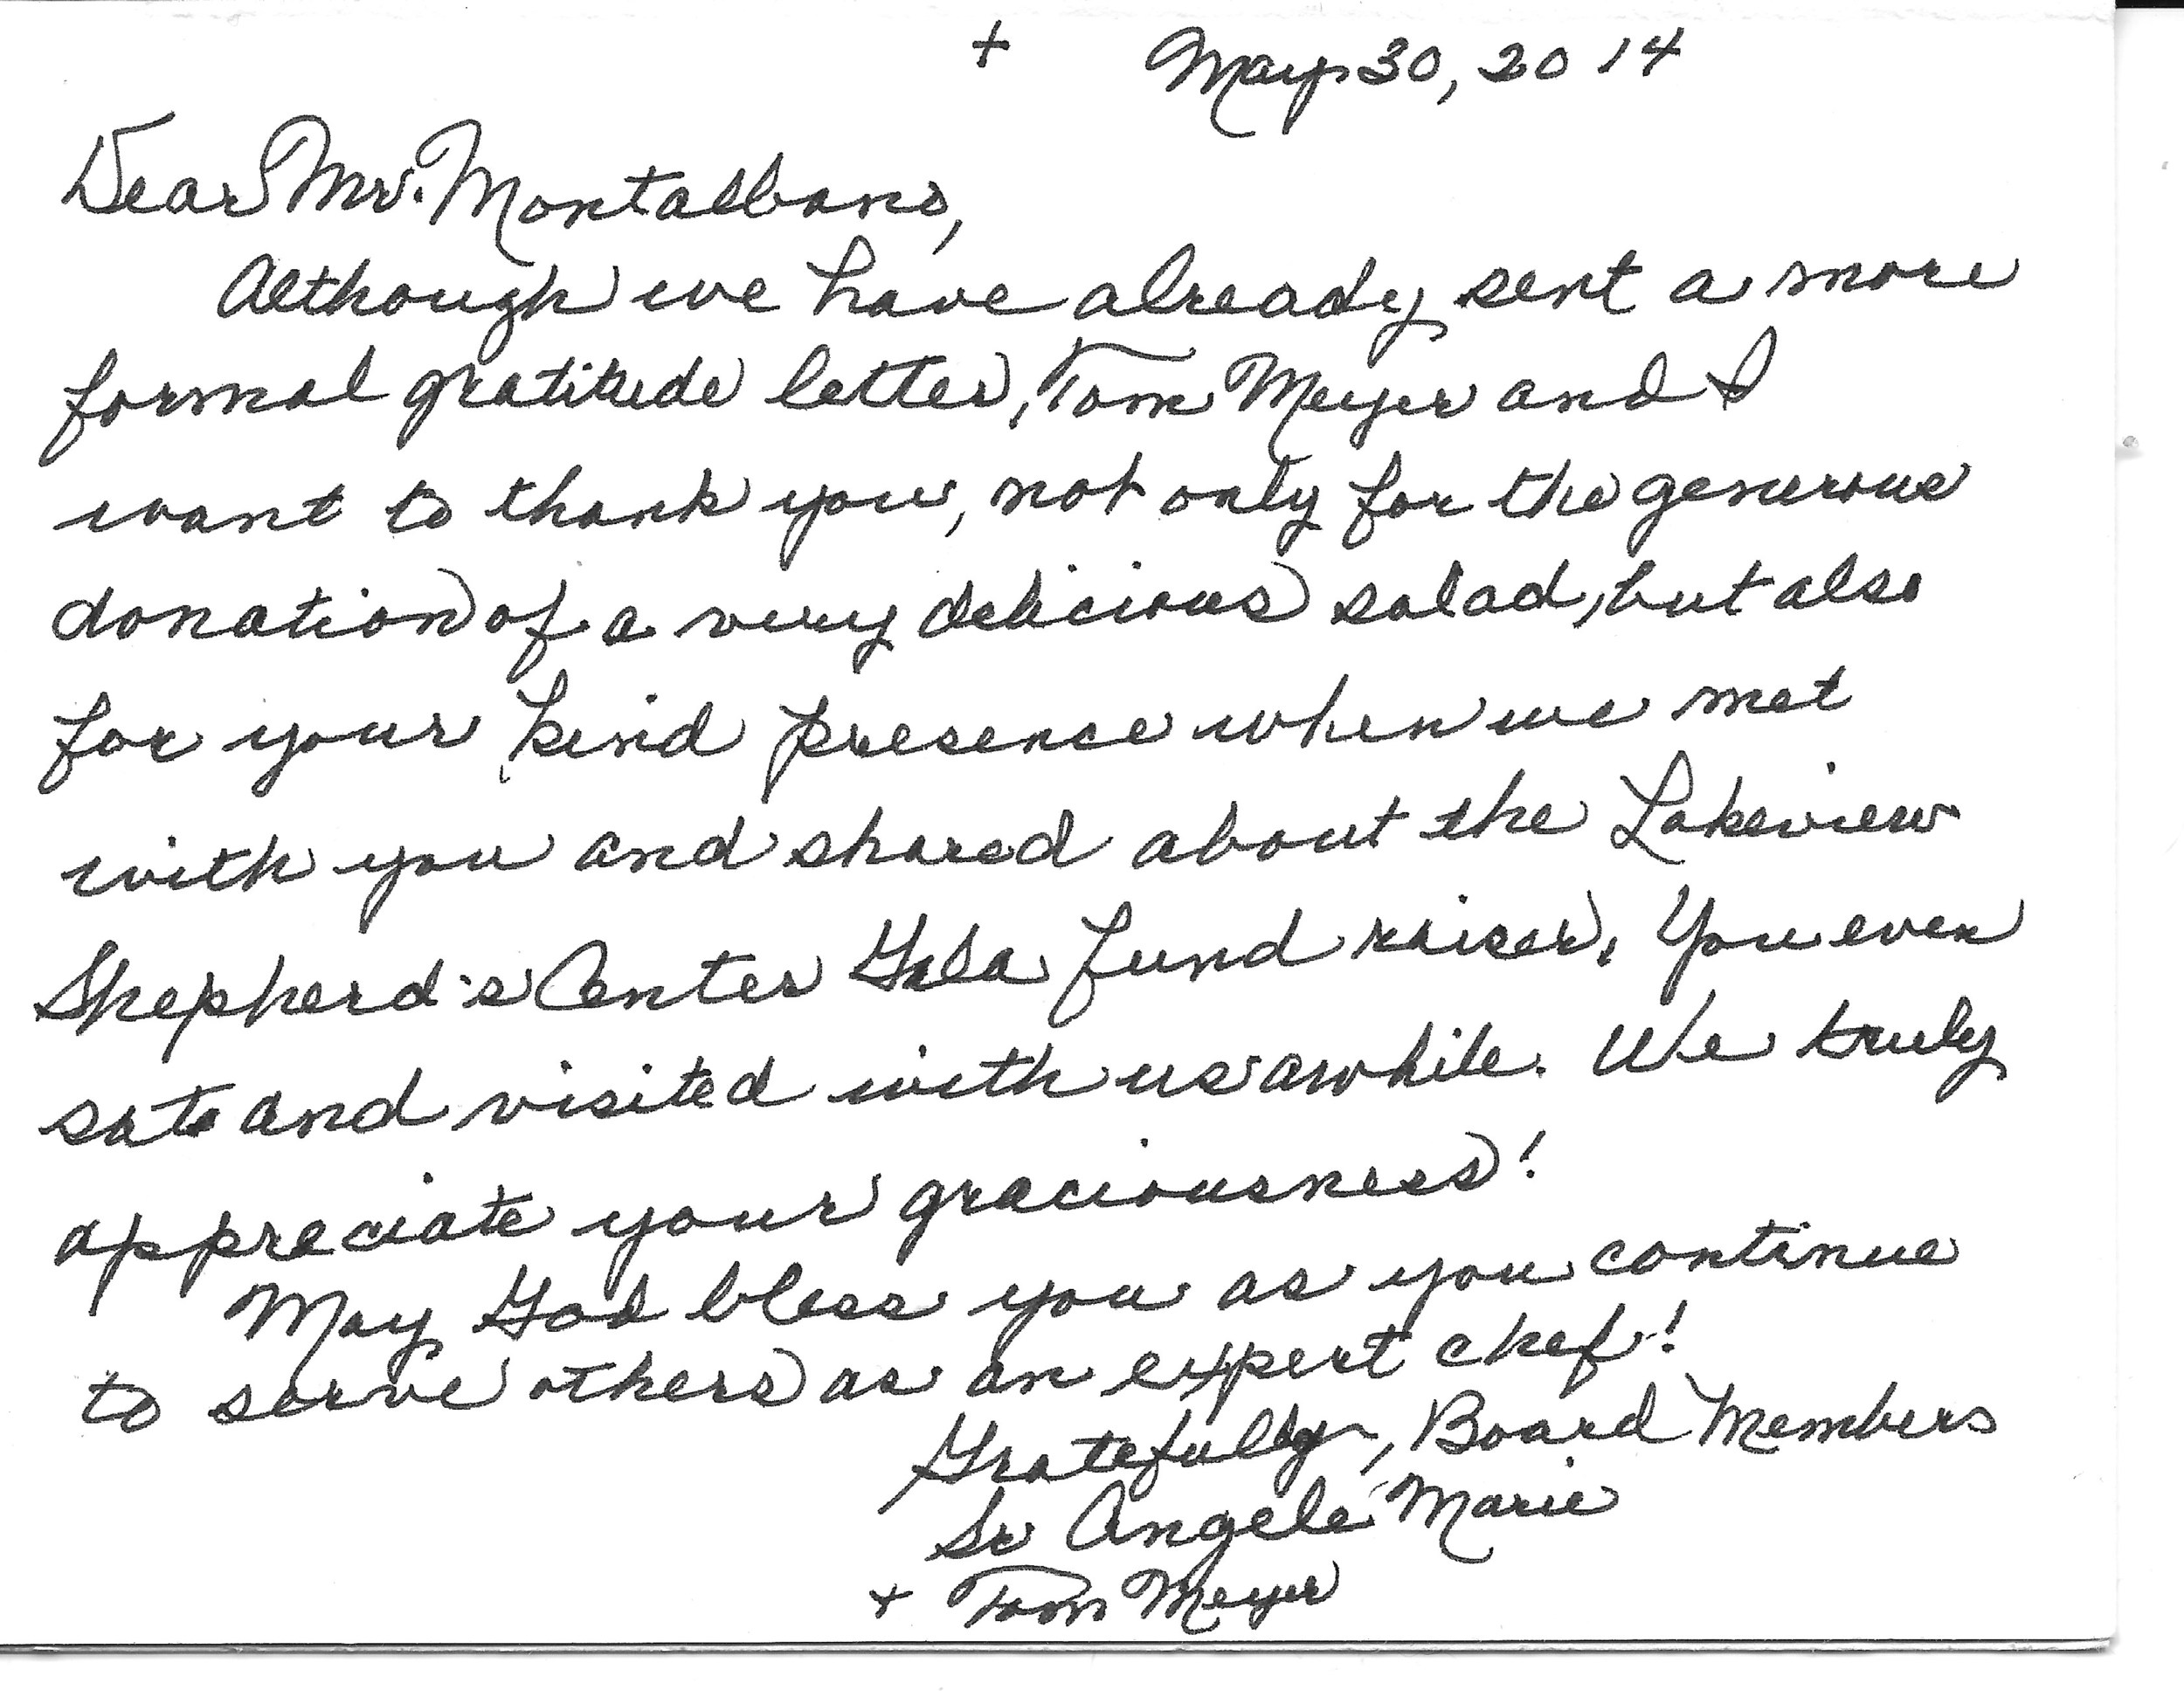 + May 30, 2014
Dear Mr. Montalbano,
Although we have already sent a more
formal gratitude letter, Tom Meyer and I
want to thank you, not only for the generous
donation of a very delicious salad, but also
for your kind presence when we met
with you and shared about the Lakeview
Shepherd's Center Gala fund raiser. You even
sat and visited with us awhile. We truly
appreciate your graciousness!
May God bless you as you continue
to serve others as an expert chef!
Gratefully, Board Members
Sr Angele Marie
+ Tom Meyer